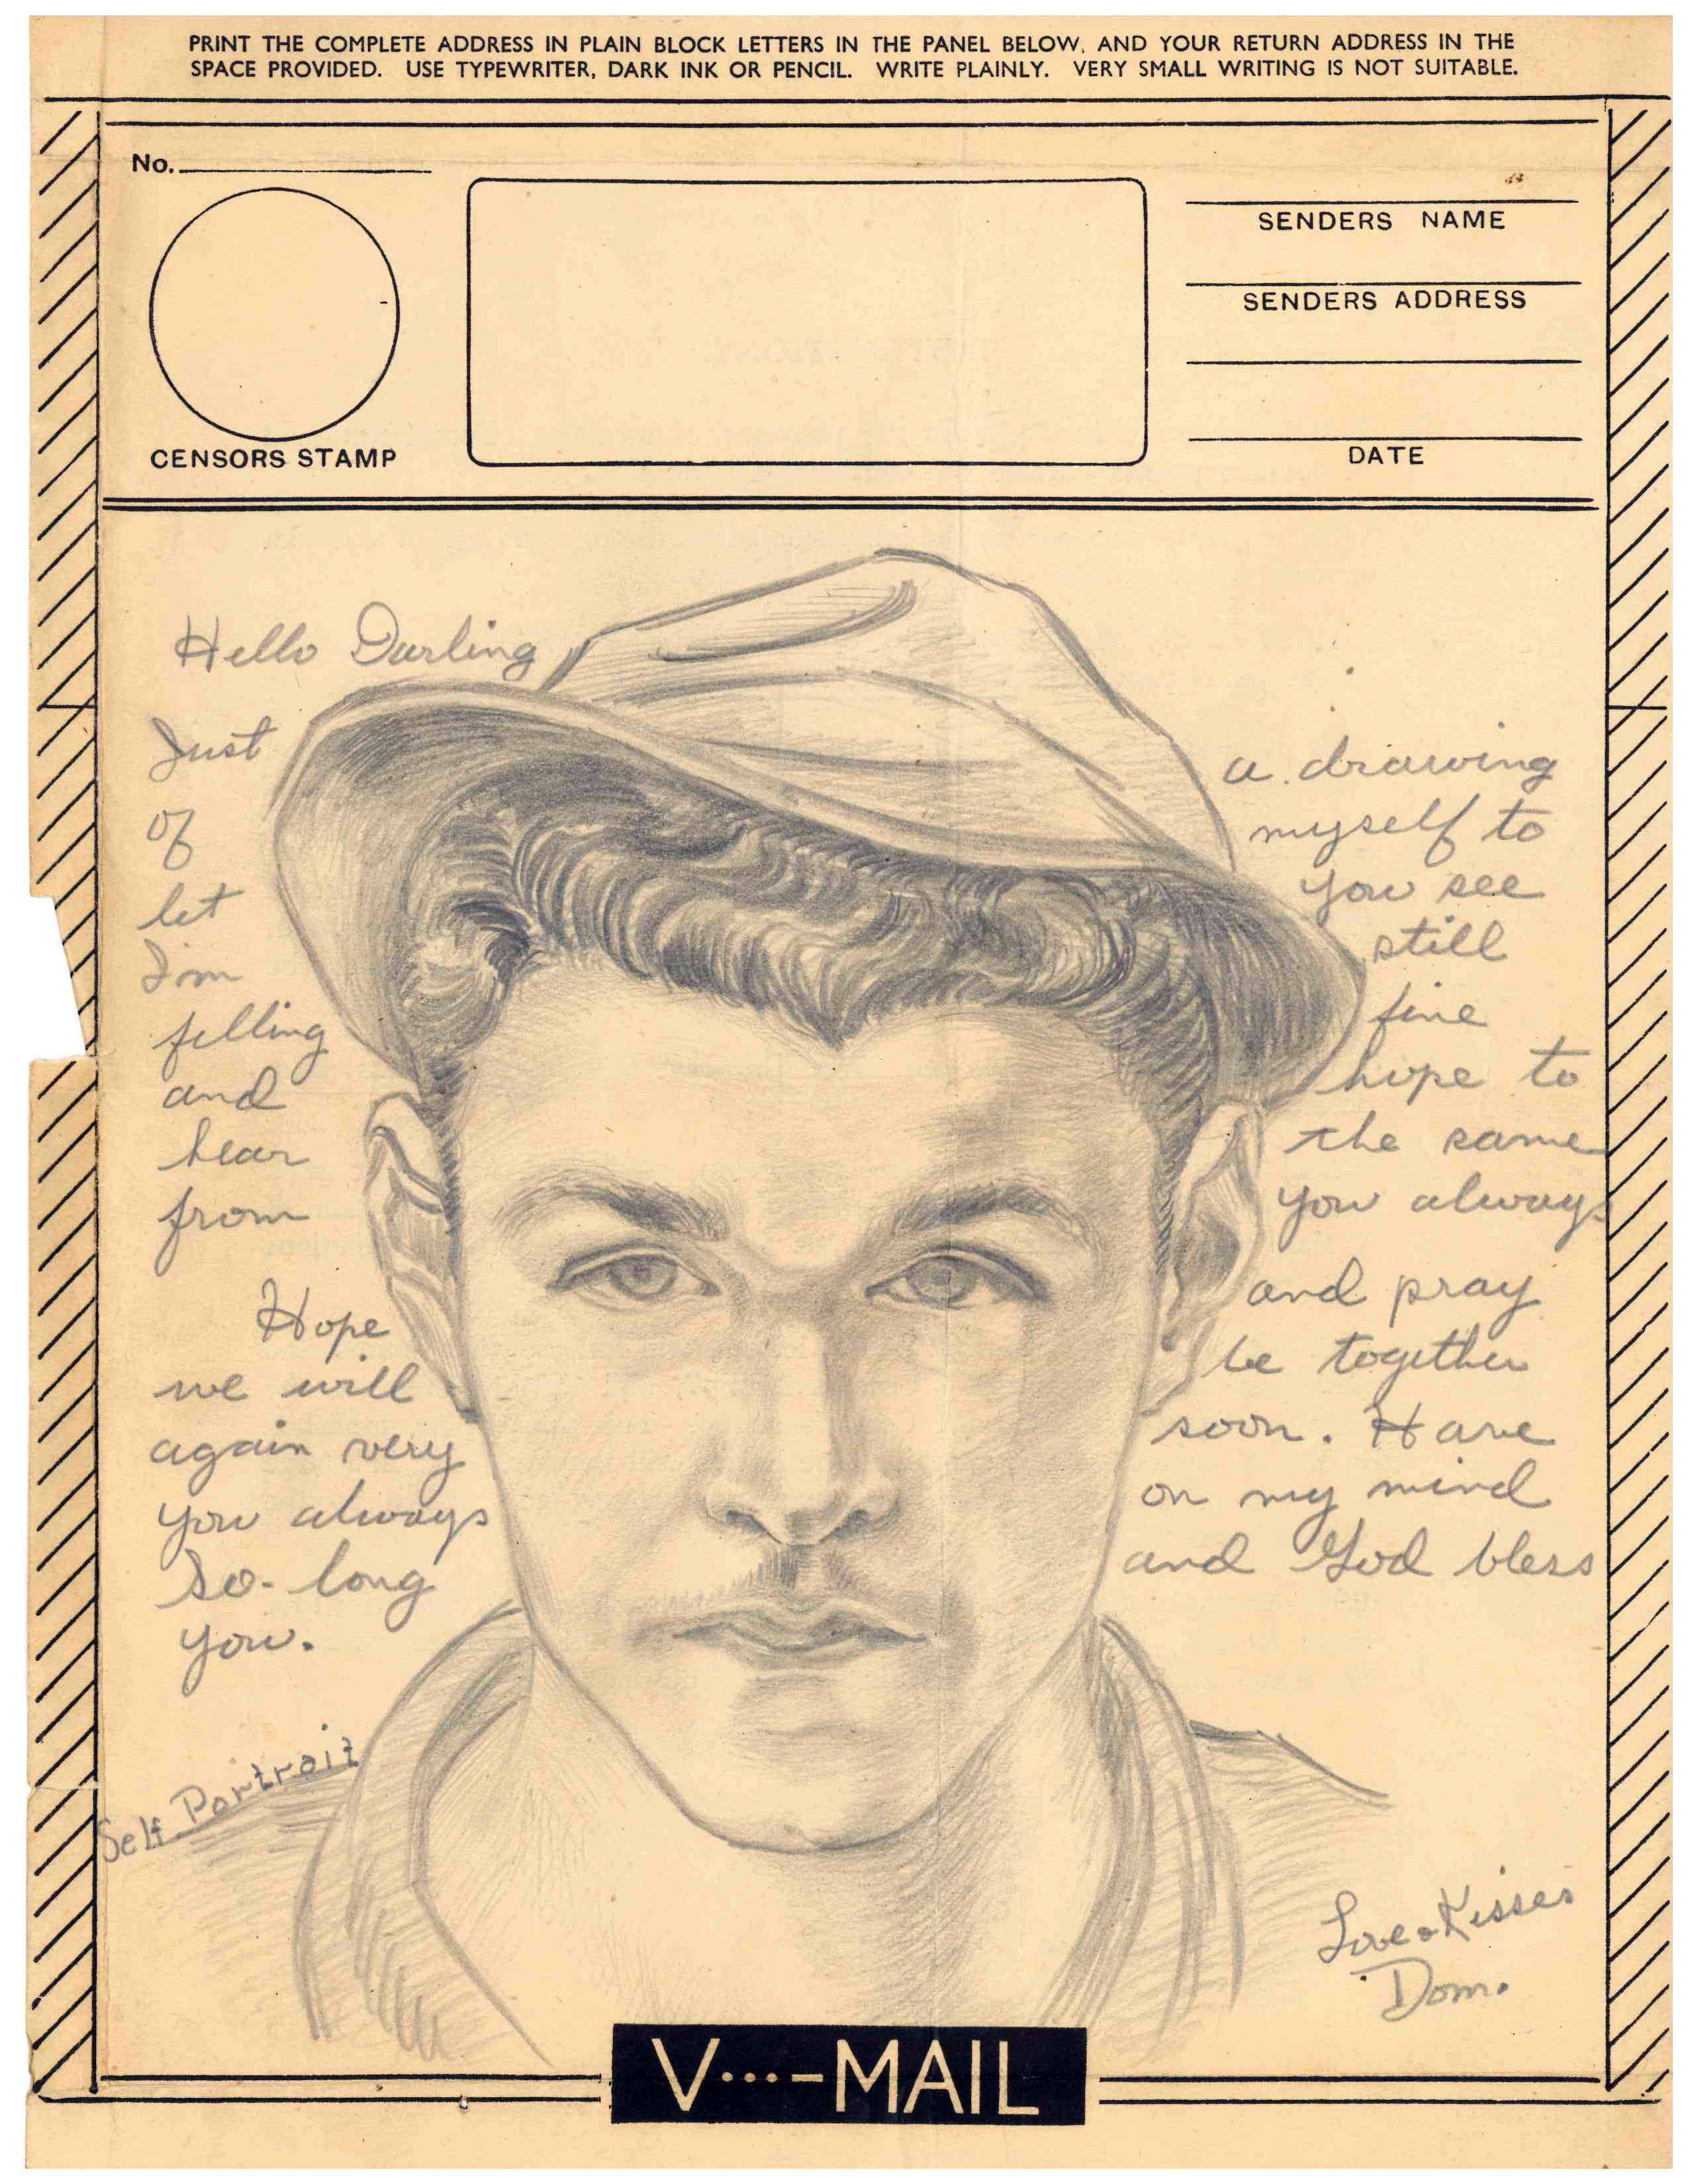 PRINT THE COMPLETE ADDRESS IN PLAIN BLOCK LETTERS IN THE PANEL BELOW, AND YOUR RETURN ADDRESS IN THE
SPACE PROVIDED. USE TYPEWRITER, DARK INK OR PENCIL. WRITE PLAINLY. VERY SMALL WRITING IS NOT SUITABLE.
No.
CENSORS STAMP
SENDERS NAME
SENDERS ADDRESS
DATE
Hello Darling
Just a drawing
of myself to
let you see
I'm still
felling fine
and hope to
hear the same
from you always
Hope and pray
we will be together
again very soon. Have
you always on my mind
So-long and God bless
you.
Self Portrait
Love & Kisses
Dom.
V...-MAIL